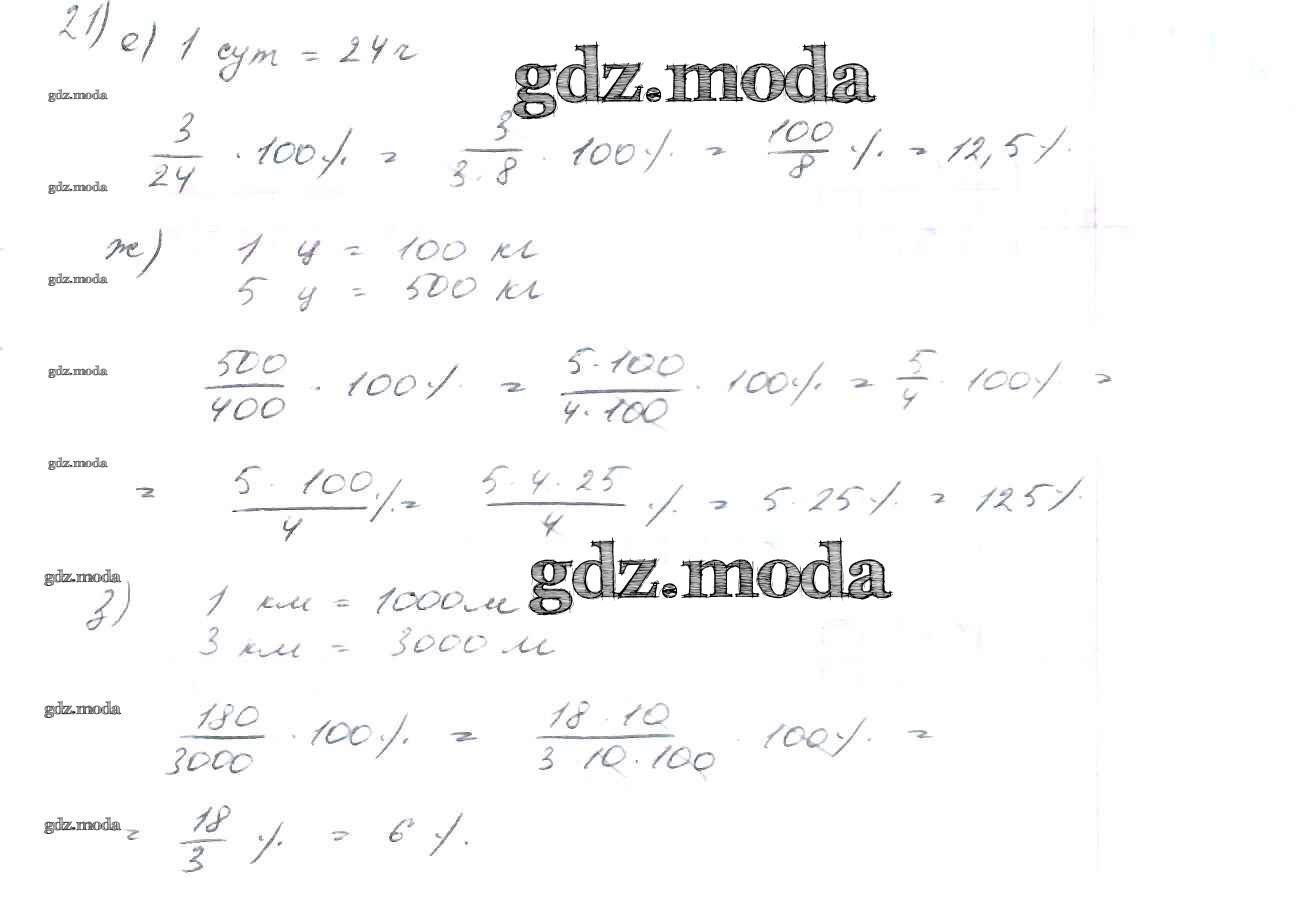 21) е) 1 сут = 24 ч
gdz.moda
gdz.moda
3/24 · 100% = 3/(3·8) · 100% = 100/8 % = 12,5%
gdz.moda
ж) 1 ц = 100 кг
gdz.moda
5 ц = 500 кг
gdz.moda
500/400 · 100% = (5·100)/(4·100) · 100% = 5/4 · 100% =
gdz.moda
= (5·100)/4 % = (5·4·25)/4 % = 5·25% = 125%
gdz.moda
gdz.moda
з) 1 км = 1000 м
3 км = 3000 м
gdz.moda
180/3000 · 100% = (18·10)/(3 10·100) · 100% =
gdz.moda
= 18/3 % = 6%